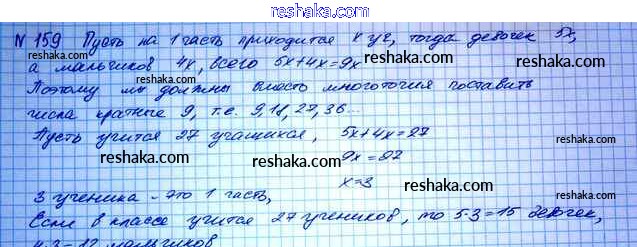 reshaka.com
N 159 Пусть на 1 часть приходится x уч, тогда девочек 5x,
reshaka.com reshaka.com
а мальчиков 4x, всего 5x+4x=9x
reshaka.com
Поэтому мы должны вместо многоточия поставить
reshaka.com
числа кратные 9, т.е. 9, 18, 27, 36...
reshaka.com
Пусть учится 27 учащихся, 5x+4x=27
reshaka.com reshaka.com
9x=27
reshaka.com
x=3
3 ученика - это 1 часть,
reshaka.com
Если в классе учится 27 учеников, то 5·3=15 девочек,
reshaka.com
4·3=12 мальчиков